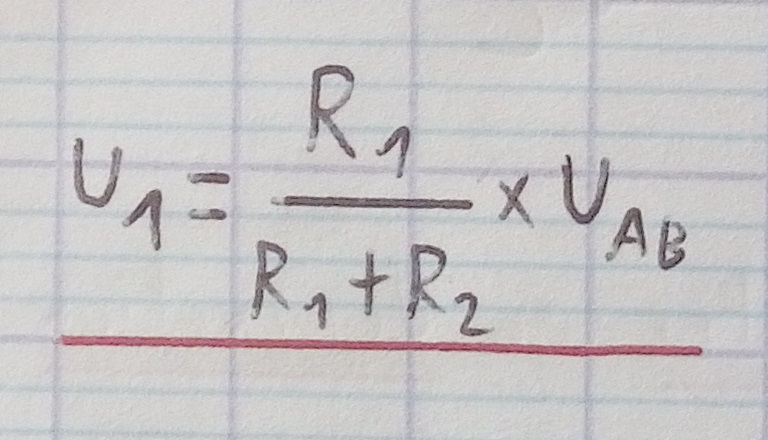 U₁ = R₁ / (R₁ + R₂) × U_AB